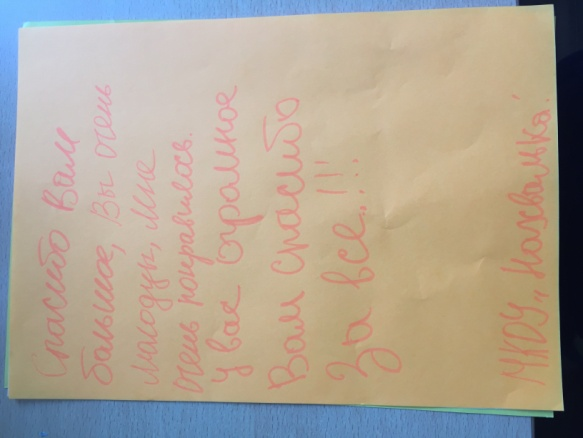 Спасибо Вам
большое, Вы очень
молодцы, мне
очень понравилось.
у вас огромное
Вам спасибо
За все..!!!
МКОУ,,